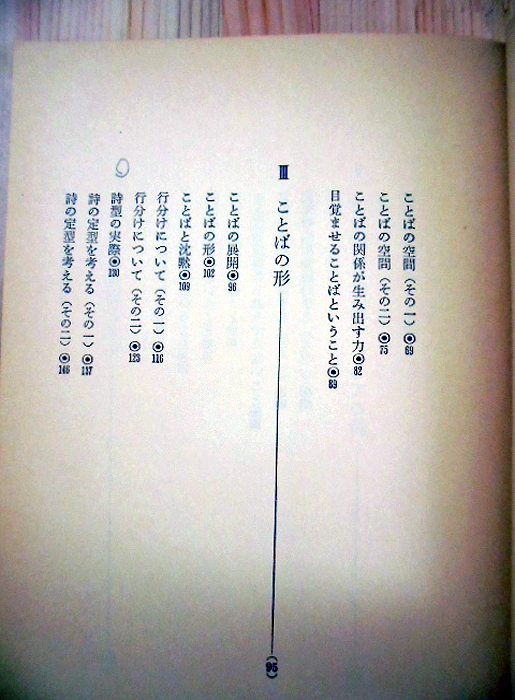 ことばの空間（その一）◉69
ことばの空間（その二）◉75
ことばの関係が生み出す力◉82
目覚ませることばということ◉89
Ⅲ ことばの形――（95）
ことばの展開◉96
ことばの形◉102
ことばと沈黙◉109
行分けについて（その一）◉116
行分けについて（その二）◉123
詩型の実際◉130
詩の定型を考える（その一）◉137
詩の定型を考える（その二）◉146